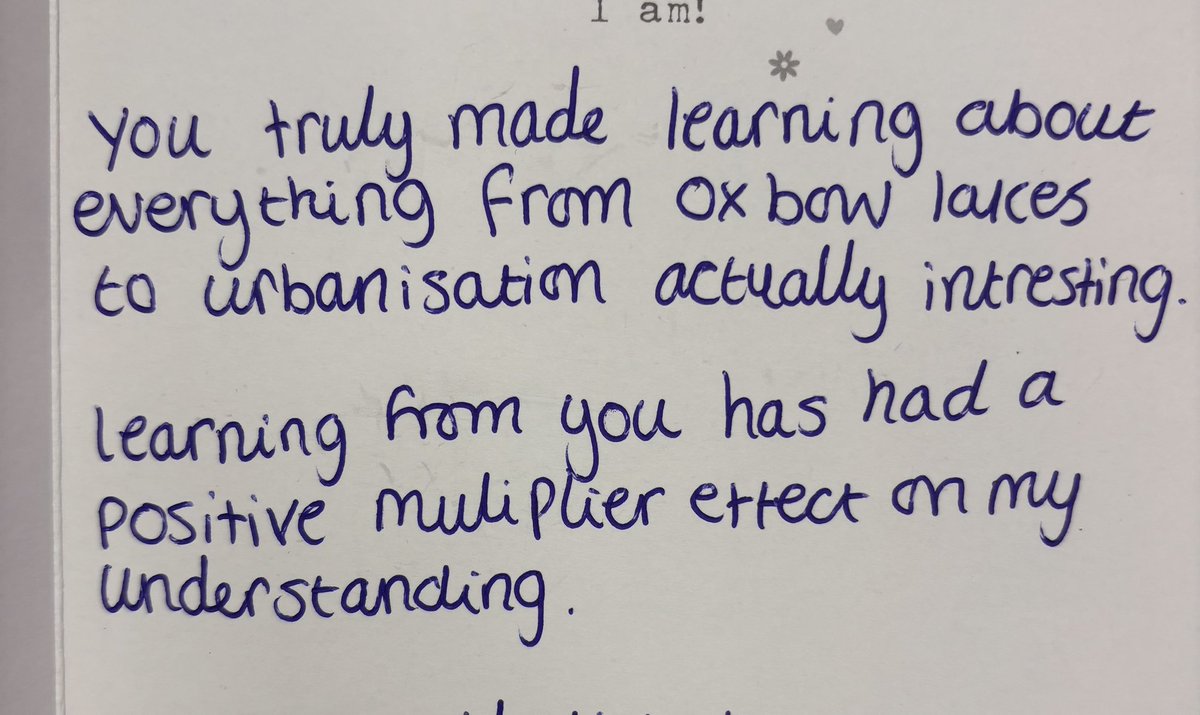 I am!
you truly made learning about
everything from oxbow lakes
to urbanisation actually intresting.
learning from you has had a
positive muliplier effect on my
understanding.